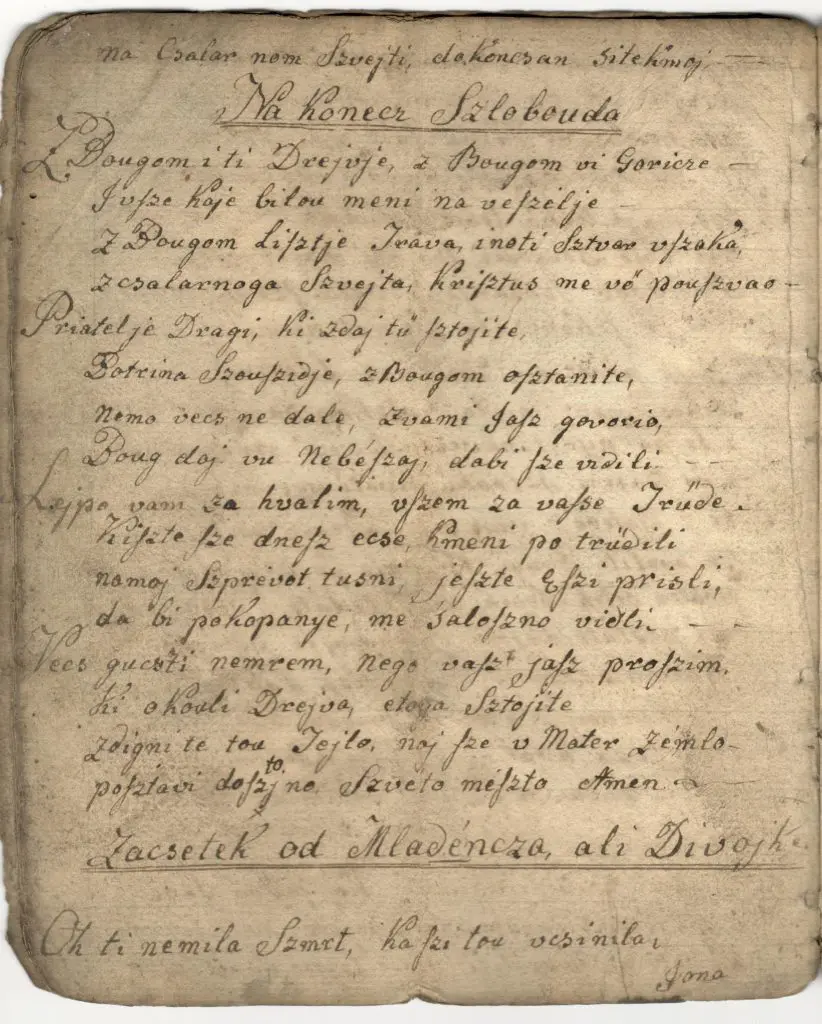 na Csalar nom Szvejti, dokoncsan sitekmoj
Na Konecz Szlobouda
Z Bougom i ti Drejvje, z Bougom vi Goricze
I vsze kaje bilou meni na veszélje
Z Bougom Lisztje Trava, i noti Sztvar vszaka,
z csalarnoga Szvejta, Krisztus me vö pouszvao
Priatelje Dragi, ki zdaj tü sztojite,
Botrina Szouszidje, z Bougom osztanite,
nomo vecs ne dale, zvami Jasz govorio,
Boug daj vu Nebészaj, dabi sze vidili
Lejpo vam za hvalim, vszem za vasse Trüde.
Kiszte sze dnesz ecse, kmeni po trüdili
namoj Szprevot tusni, jeszte Eszi prisli,
da bi pokopanye, me saloszno vidli.
Vecs gucsti nemrem, nego vasz jasz proszim,
ki okouli Drejva, etoga Sztojite
zdigni te tou Tejlo, naj sze v Mater Zémlo
posztavi doszto jno Szveto meszto Amen
Zacsetek od Mladéncza, ali Divojke
Oh ti nemila Szmrt, ka szi tou vcsinila,
Jona